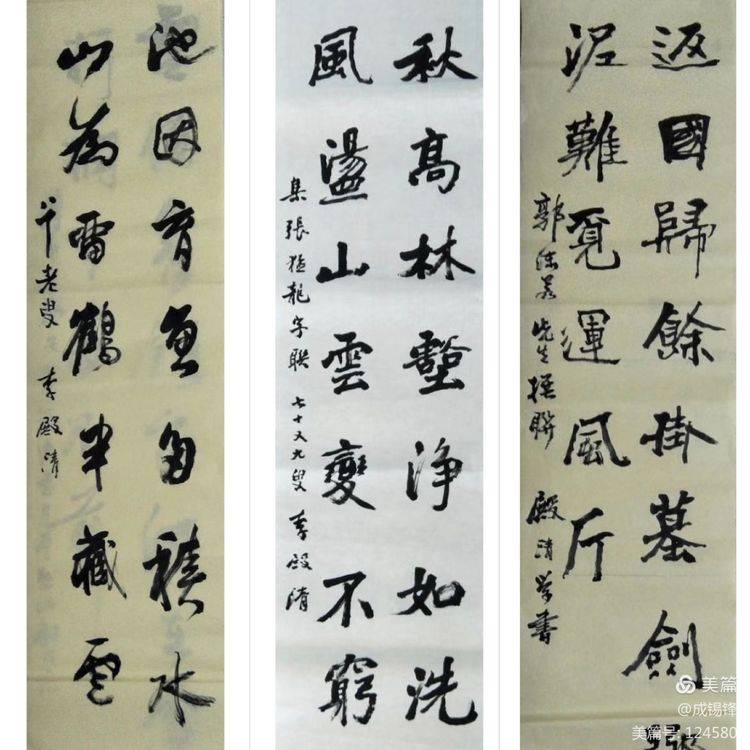 返國歸餘掛墓劍
泥難覓運風斤
郭沫若先生撰聯 殿清學書
秋高林壑淨如洗
風盪山雲變不窮
集張猛龍字聯 七十又九叟 李殿清
池因育魚多積水
山為留鶴半藏雲
八十老叟 李殿清
美篇
@成锡锋
美篇号: 124580